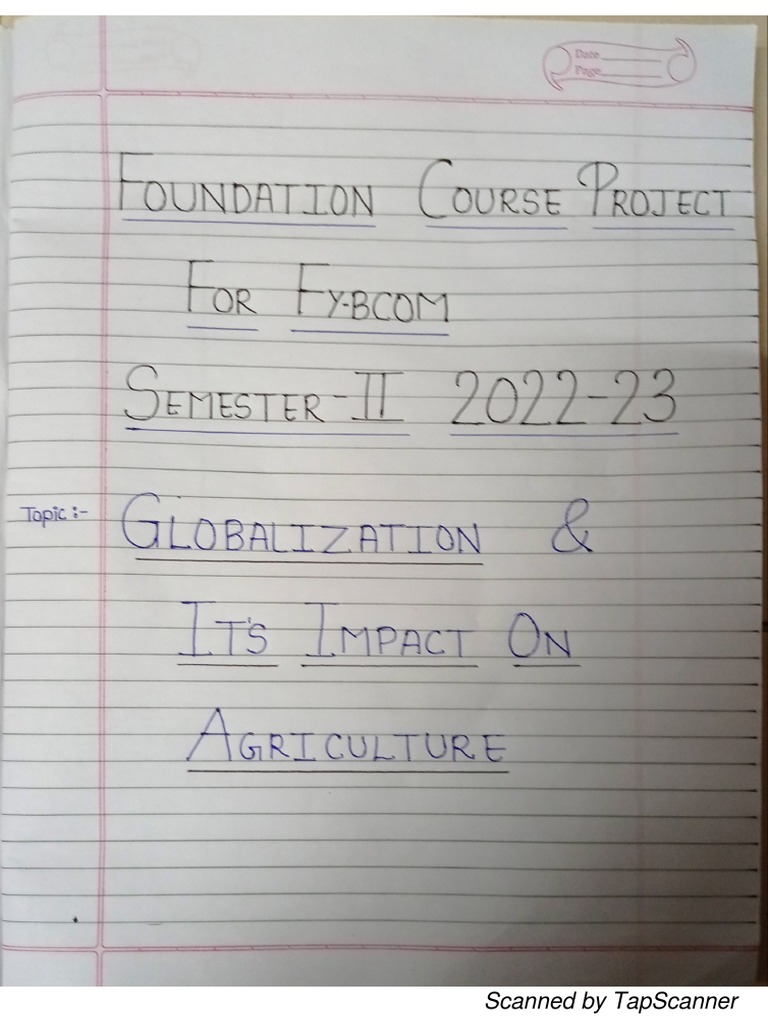 Date
Page
FOUNDATION COURSE PROJECT
FOR FY-BCOM
SEMESTER-II 2022-23
Topic:- GLOBALIZATION &
IT'S IMPACT ON
AGRICULTURE
Scanned by TapScanner